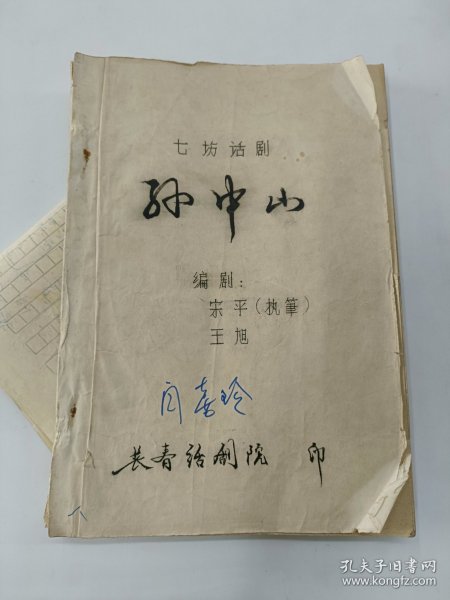 七坊话剧
孙中山
编剧：
宋平（执筆）
王旭
闫喜玲
长春话剧院 印
孔夫子旧书网
www.kongfz.com